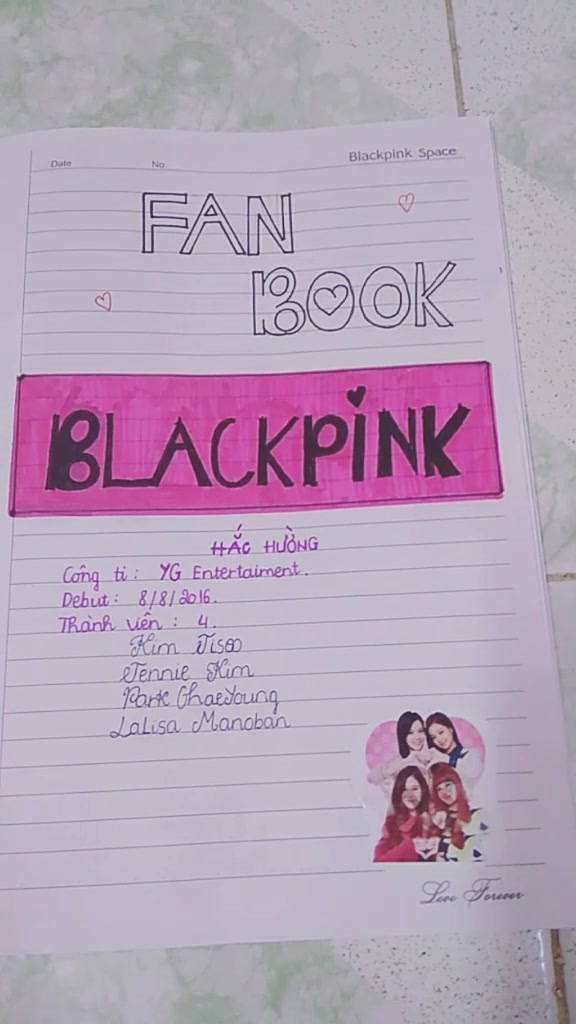 Date No. Blackpink Space
FAN
BOOK
BLACKPINK
HẮC HƯỜNG
Công ti : YG Entertaiment.
Debut : 8/8/2016.
Thành viên : 4.
Kim Jisoo
Jennie Kim
Park ChaeYoung
LaLisa Manoban
Love Forever